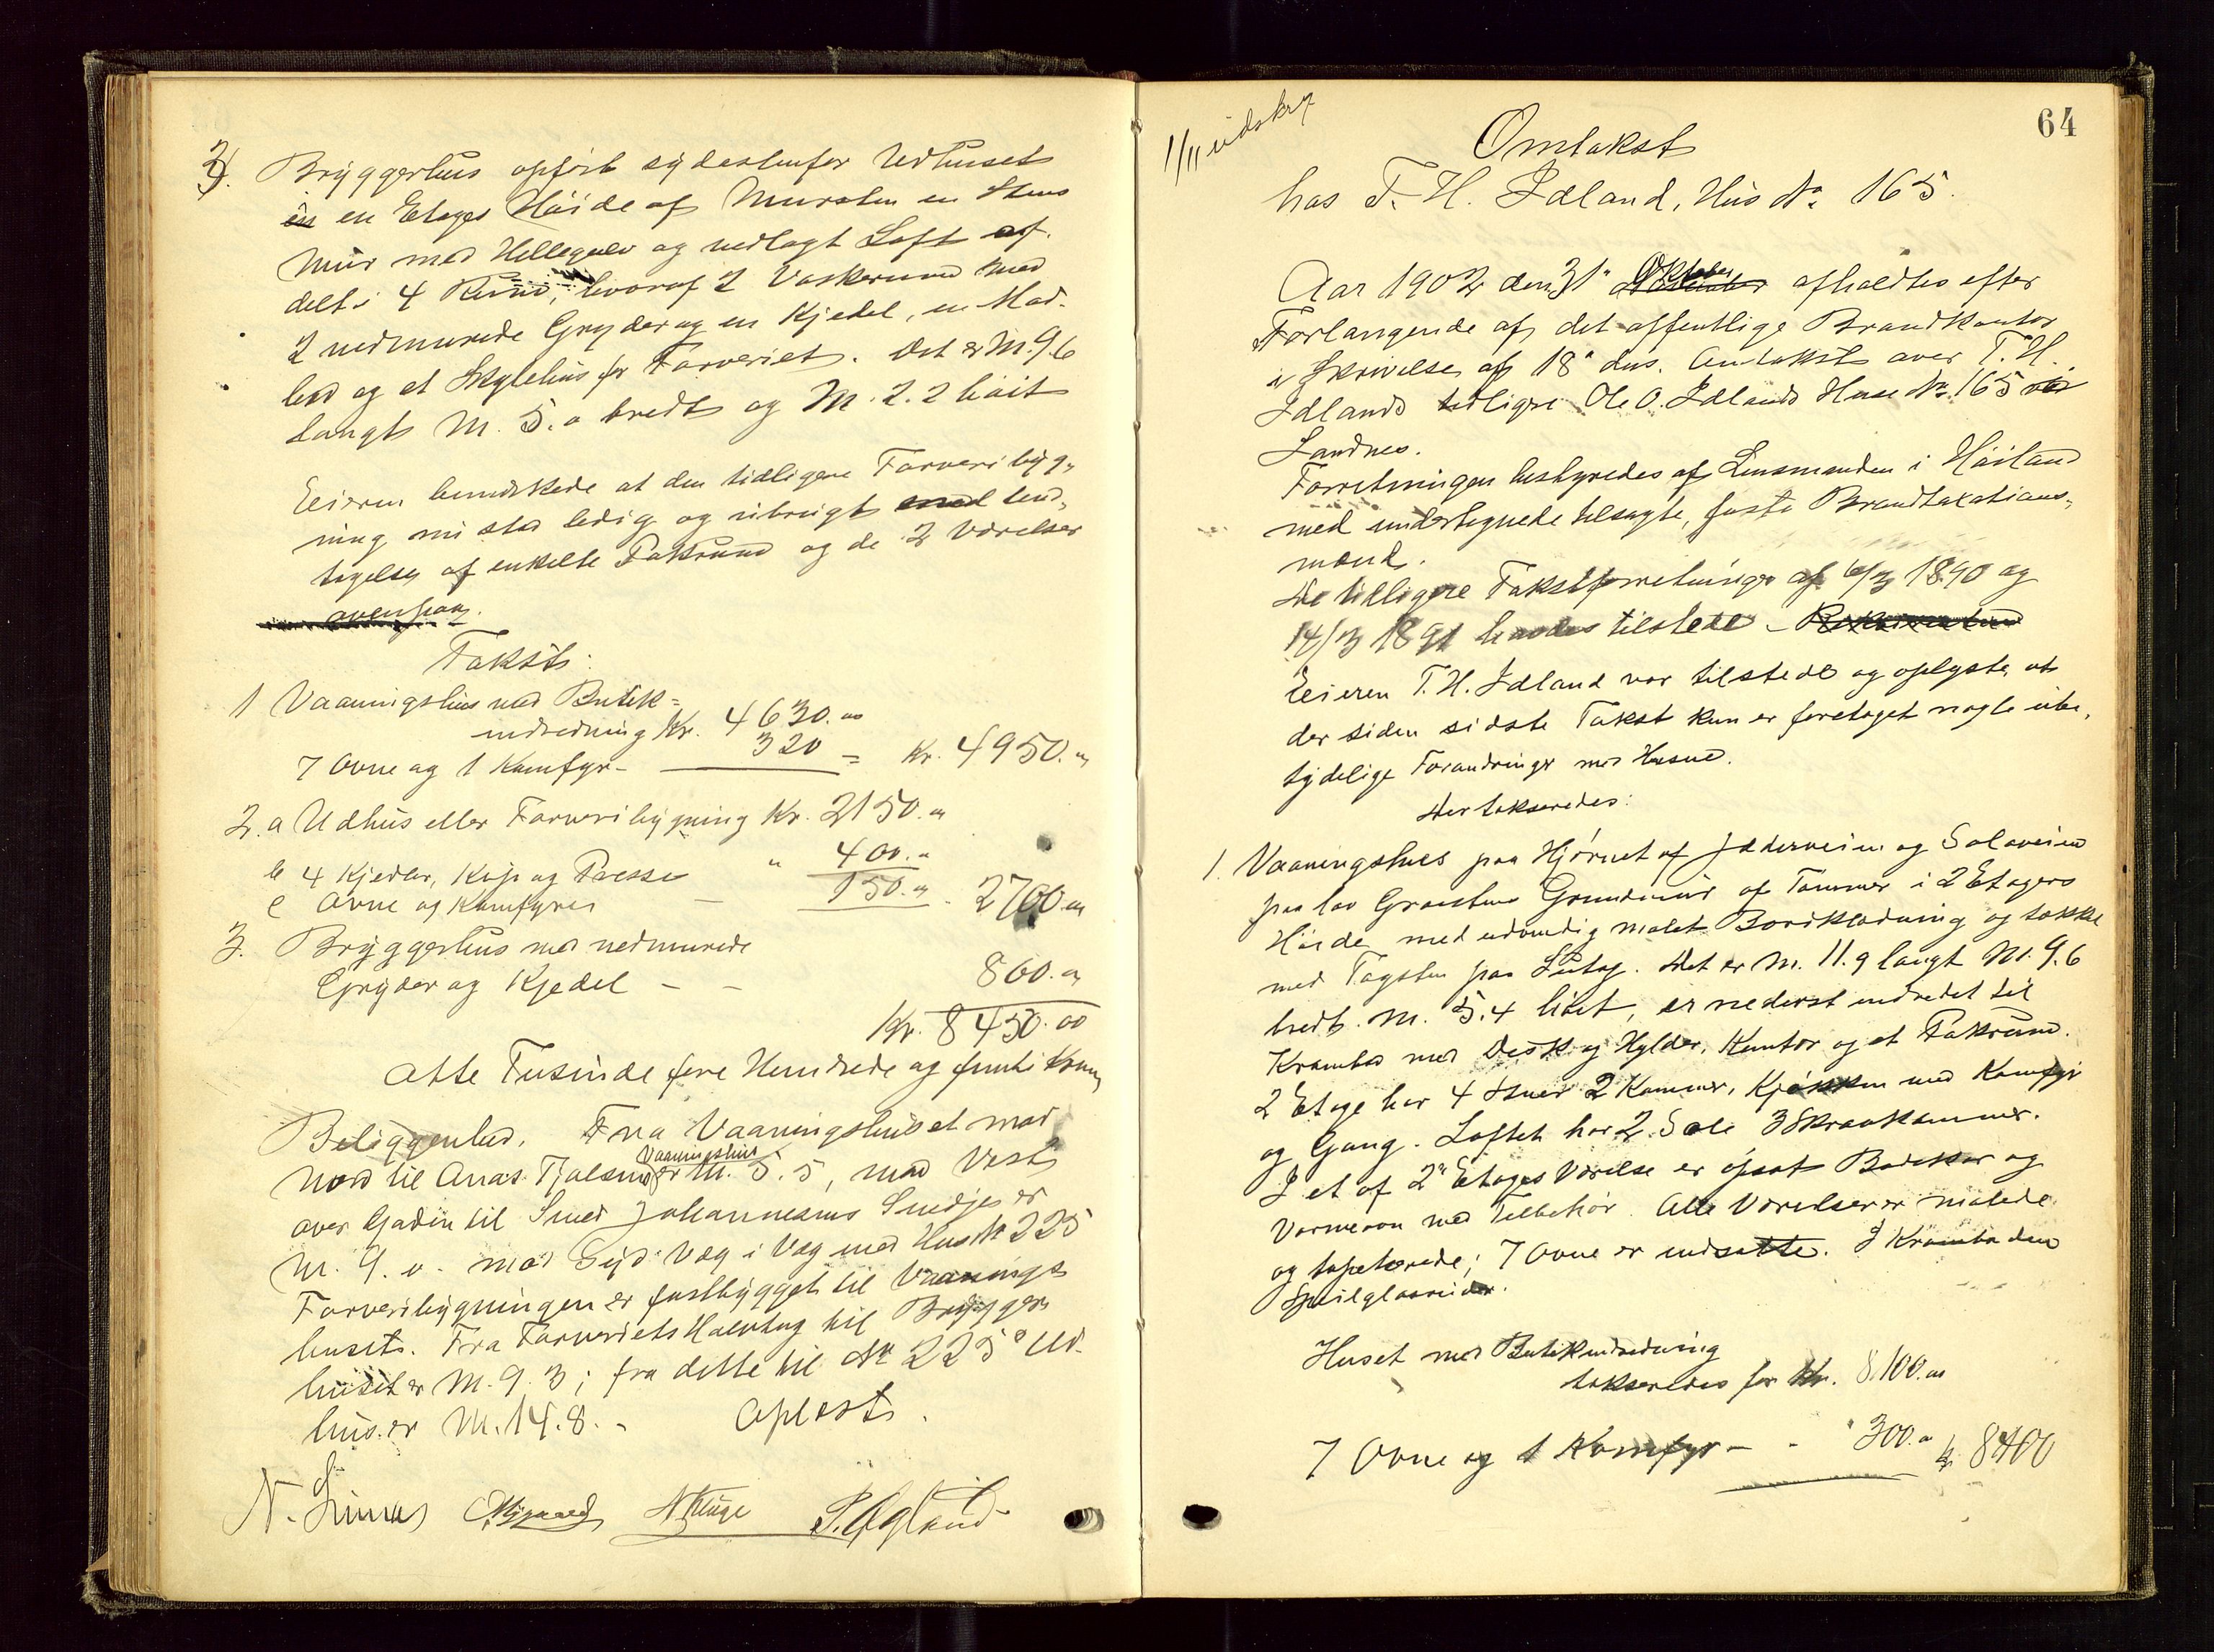 3). Bryggerhus opført sydøstenfor Udhuset
i en Etages Høide af Mursten en Stens
Mur med Hellegulv og nedlagt Loft af-
delt i 4 Rum, hvoraf 2 Vaskerum med
2 nedmurede Gryder og en Kjedel, en Mad-
bod og et Skylehus for Farveriet. Det er M. 9.6
langt M. 5.0 bredt og M. 2.2 høit
Eieren bemærkede at den tidligere Farveribyg-
ning nu står ledig og ubrugt med und-
tagelse af enkelte Pakrum og de 2 Værelser
ovenpaa.
Takst:
1 Vaaningshus med Butik-
indredning Kr. 4630.00
7 Ovne og 1 Komfyr – 320 = Kr. 4950.00
2.a Udhus eller Farveribygning Kr. 2150.00
b 4 Kjedler, Kyp og Presse " 400.00
c Ovne og Komfyrer – 150.00 - 2700.00
3. Bryggerhus med nedmurede
Gryder og Kjedel – – 800.00
Kr. 8450.00
Otte Tusinde fire Hundrede og femti Kroner
Beliggenhed. Fra Vaaningshuset mod
Vaaningshus
Nord til Anas. Tjalsens er M. 5.5, mod Vest
over Gaden til Smed Johannesens Smedje er
M. 9.0 - mod Syd Væg i Væg med Hus № 225
Farveribygningen er fastbygget til Vaanings-
huset. Fra Farveriets Halvtag til Brygger-
huset er M. 9.3; fra dette til № 225s Ud-
hus er M. 14.8. - Oplæst.
N. Limas N Kluge P. Øgland
64
1/11 udskr.
Omtakst
hos T. H. Idland, Hus № 165.
Aar 1902 den 31" Oktober afholdtes efter
Forlangende af det offentlige Brandkontor
i Skrivelse af 18" ds. Omtakst over T. H.
Idlands tidligere Ole O. Idlands Huse № 165 i
Sandnes.
Forretningen bestyredes af Lensmanden i Høiland
med undertegnede tilsagte, faste Brandtaxations-
mænd.
De tidligere Takstforretninger af 6/3 1890 og
14/3 1891 havdes tilstede -
Eieren T. H. Idland var tilstede og oplyste, at
der siden sidste Takst kun er foretaget nogle ube-
tydelige Forandringer med Husene.
Der takseredes:
1. Vaaningshus paa Hjørnet af Jæderveien og Solaveien
paa lav Graastens Grundmur af Tømmer i 2 Etagers
Høide, med udvendig malet Bordklædning og tækket
med Tagsten paa Sutag. Det er M. 11.9 langt M. 9.6
bredt. M. 5.4 høit, er nederst indredet til
Krambod med Disk og Hylder, Kontor og et Pakrum.
2 Etage har 4 Stuer 2 Kammer, Kjøkken med Komfyr
og Gang. Loftet har 2 Sale 3 Skraakammer.
I et af 2" Etages Værelse er opsat Badekar og
Varmeovn med Tilbehør. Alle Værelser er malede
og tapetserede; 7 Ovne er indsatte. I Kramboden
Speilglasruder.
Huset med Butikindredning
takseredes for Kr. 8100.00
7 Ovne og 1 Komfyr – - " 300.00 Kr. 8400